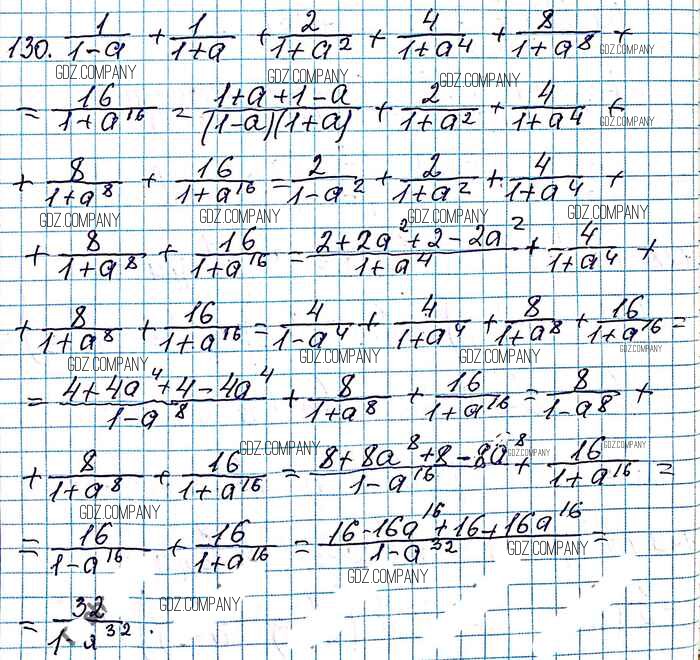 130. 1/(1-a) + 1/(1+a) + 2/(1+a²) + 4/(1+a⁴) + 8/(1+a⁸) +
GDZ.COMPANY GDZ.COMPANY GDZ.COMPANY GDZ.COMPANY
= 16/(1+a¹⁶) = (1+a+1-a)/((1-a)(1+a)) + 2/(1+a²) + 4/(1+a⁴) +
GDZ.COMPANY
+ 8/(1+a⁸) + 16/(1+a¹⁶) = 2/(1-a²) + 2/(1+a²) + 4/(1+a⁴) +
GDZ.COMPANY GDZ.COMPANY GDZ.COMPANY GDZ.COMPANY
+ 8/(1+a⁸) + 16/(1+a¹⁶) = (2+2a²+2-2a²)/(1+a⁴) + 4/(1+a⁴) +
+ 8/(1+a⁸) + 16/(1+a¹⁶) = 4/(1-a⁴) + 4/(1+a⁴) + 8/(1+a⁸) + 16/(1+a¹⁶) =
GDZ.COMPANY GDZ.COMPANY GDZ.COMPANY GDZ.COMPANY
= (4+4a⁴+4-4a⁴)/(1-a⁸) + 8/(1+a⁸) + 16/(1+a¹⁶) = 8/(1-a⁸) +
GDZ.COMPANY GDZ.COMPANY GDZ.COMPANY
+ 8/(1+a⁸) + 16/(1+a¹⁶) = (8+8a⁸+8-8a⁸)/(1-a¹⁶) + 16/(1+a¹⁶) =
GDZ.COMPANY
= 16/(1-a¹⁶) + 16/(1+a¹⁶) = (16-16a¹⁶+16+16a¹⁶)/(1-a³²) =
GDZ.COMPANY GDZ.COMPANY
GDZ.COMPANY
= 32/(1-a³²).